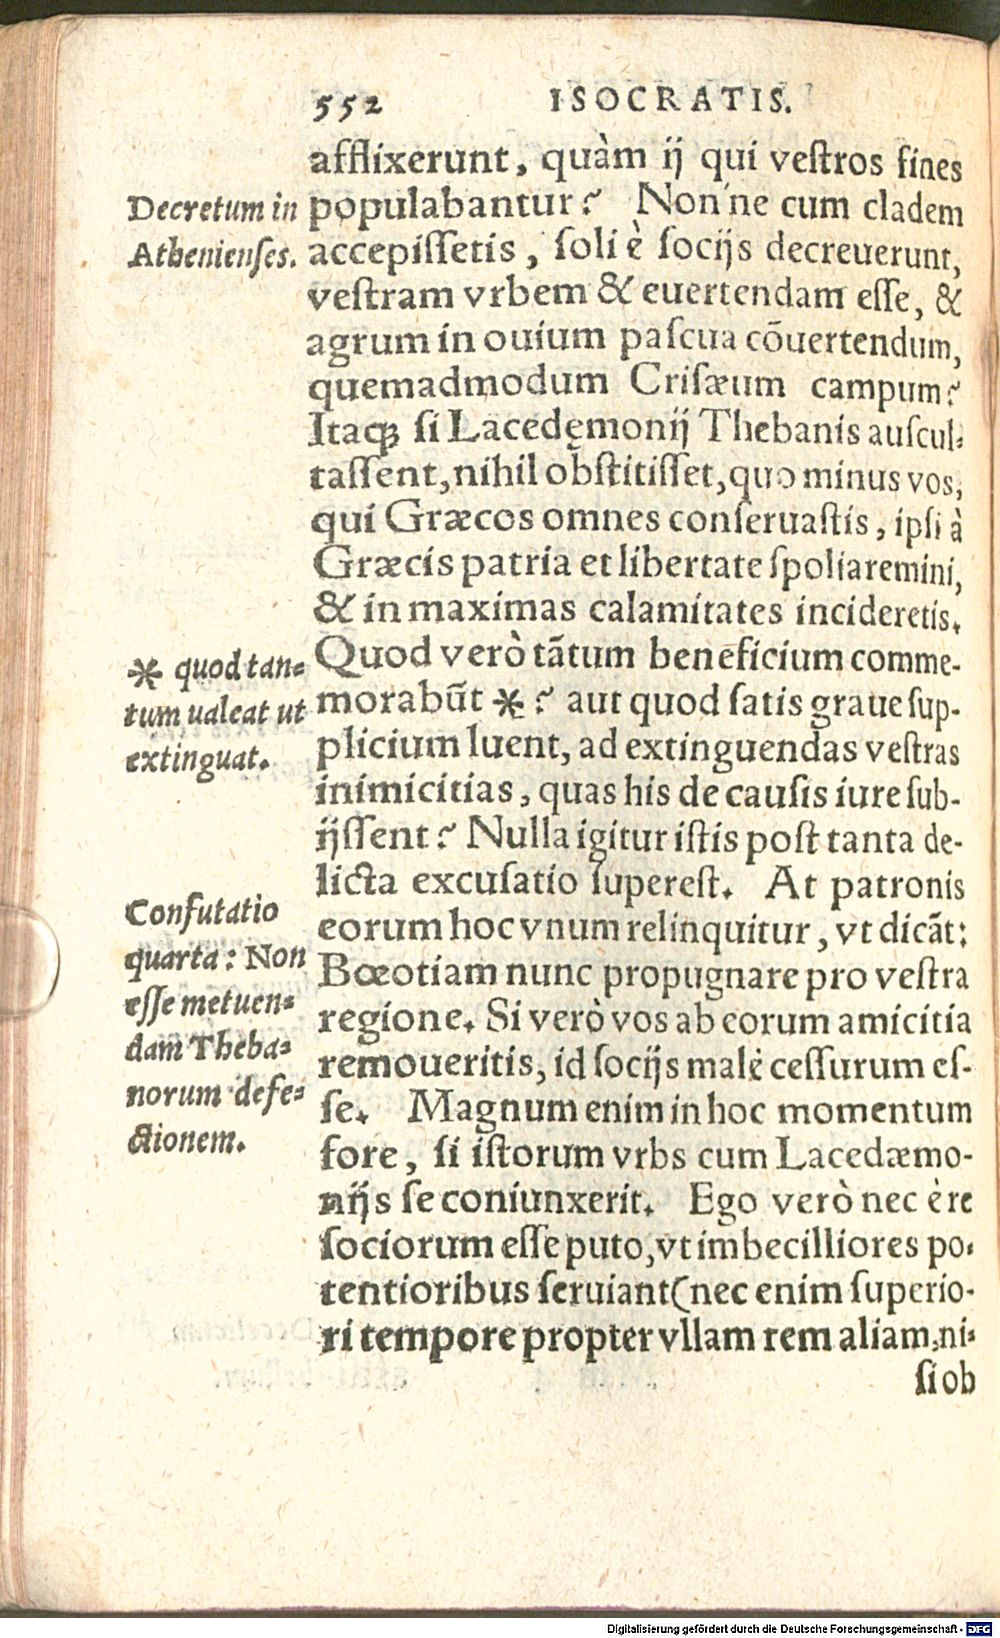 552 ISOCRATIS.
afflixerunt, quàm ij qui vestros fines
populabantur? Non ne cum cladem
accepissetis, soli è socijs decreuerunt,
vestram vrbem & euertendam esse, &
agrum in ouium pascua cõuertendum,
quemadmodum Crisæum campum?
Itaq; si Lacedęmonij Thebanis auscul-
tassent, nihil obstitisset, quo minus vos,
qui Græcos omnes conseruastis, ipsi à
Græcis patria et libertate spoliaremini,
& in maximas calamitates incideretis.
Quod verò tãtum beneficium comme-
morabũt *? aut quod satis graue sup-
plicium luent, ad extinguendas vestras
inimicitias, quas his de causis iure sub-
ijssent? Nulla igitur istis post tanta de-
licta excusatio superest. At patronis
eorum hoc vnum relinquitur, vt dicãt:
Bœotiam nunc propugnare pro vestra
regione. Si verò vos ab eorum amicitia
remoueritis, id socijs malè cessurum es-
se. Magnum enim in hoc momentum
fore, si istorum vrbs cum Lacedæmo-
nijs se coniunxerit. Ego verò nec è re
sociorum esse puto, vt imbecilliores po-
tentioribus seruiant (nec enim superio-
ri tempore propter vllam rem aliam, ni-
si ob
Decretum in
Athenienses.
* quod tan-
tum ualeat ut
extinguat.
Confutatio
quarta: Non
esse metuen-
dam Theba-
norum defe-
ctionem.
Digitalisierung gefördert durch die Deutsche Forschungsgemeinschaft - DFG